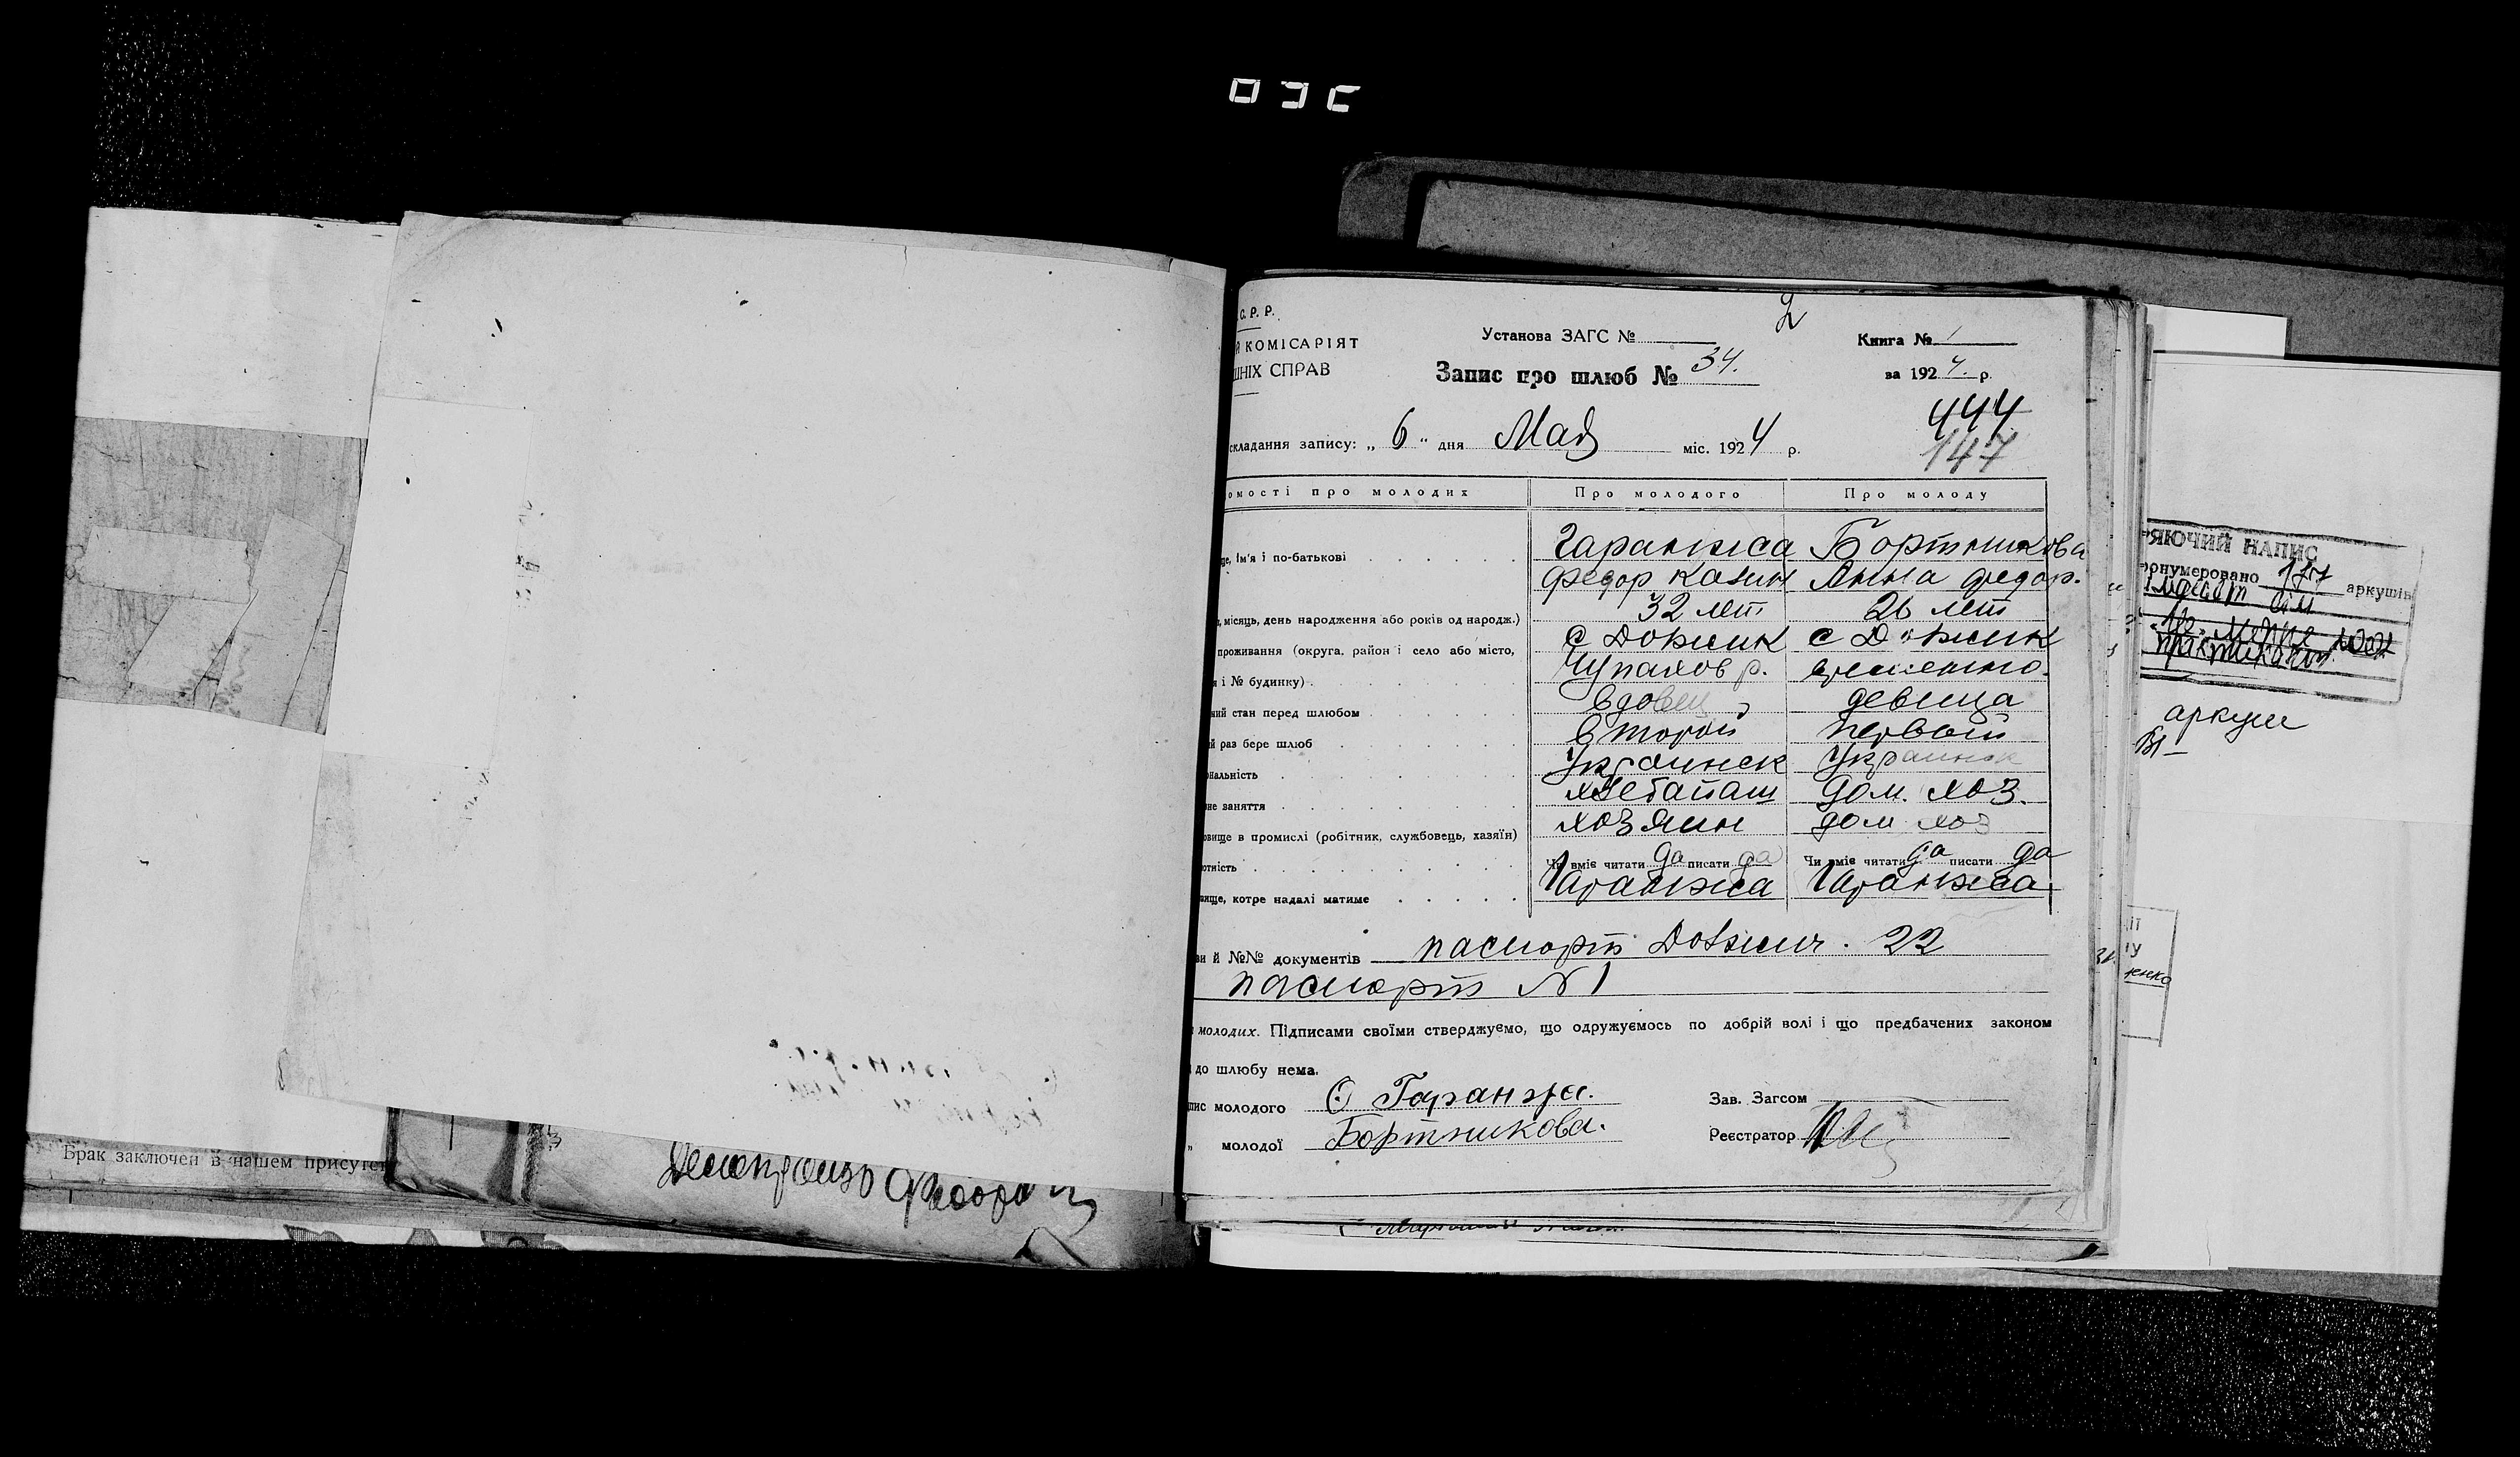 С. Р. Р.
Й КОМІСАРІЯТ
ШНІХ СПРАВ
Установа ЗАГС №
2
Книга № 1
Запис про шлюб № 34.
за 1924. р.
444
147
складання запису: „ 6 “ дня Мая міс. 1924 р.
омості про молодих
Про молодого
Про молоду
ще, ім'я і по-батькові
Гаранжа
Бортникова
Федор
Анна Федор.
, місяць, день народження або років од народж.)
32 лет
26 лет
проживання (округа, район і село або місто,
с Должик
с Должик
я і № будинку)
Чупахов р.
ний стан перед шлюбом
вдовец
девица
й раз бере шлюб
второй
первый
ональність
Украинек
Украинск
не заняття
хлебопаш
дом. хоз.
овище в промислі (робітник, службовець, хазяїн)
хозяин
дом хоз
отність
Чи вміє читати да писати да
Чи вміє читати да писати да
вище, котре надалі матиме
Гаранжа
Гаранжа
ви й №№ документів паспорт Должич. 22
паспорт N 1
молодих. Підписами своїми стверджуємо, що одружуємось по добрій волі і що предбачених законом
до шлюбу нема.
пис молодого Ф Гаранжа.
Зав. Загсом
„ молодої Бортникова.
Реєстратор
РЯЮЧИЙ НАПИС
ронумеровано 177 аркушів
аркуш
енко
Брак заключен в нашем присутст